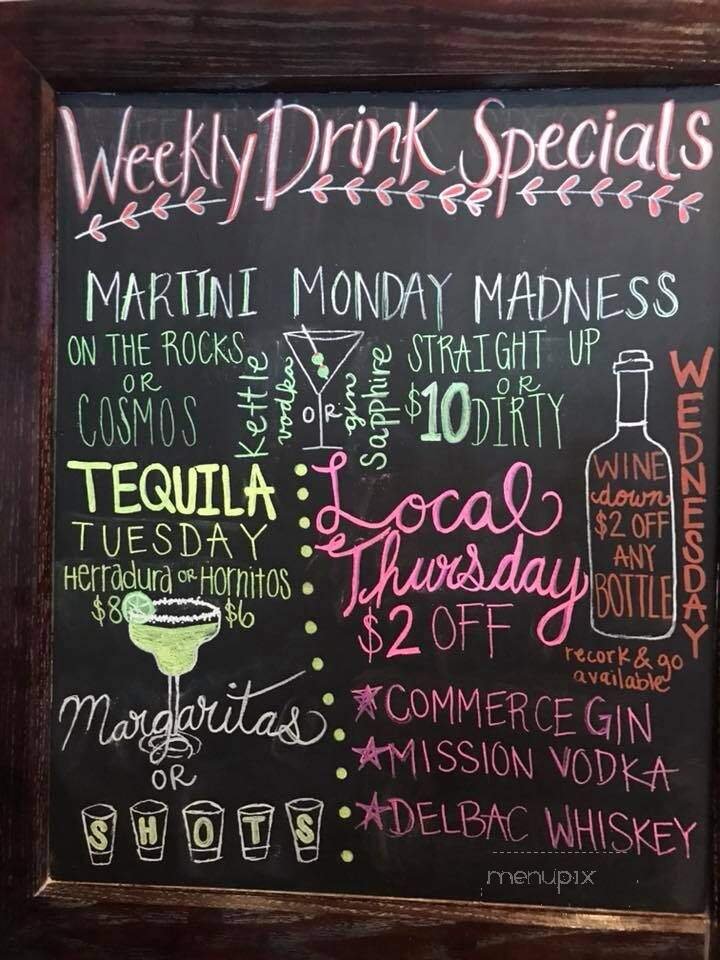 Weekly Drink Specials
MARTINI MONDAY MADNESS
ON THE ROCKS
OR
COSMOS
Kettle
vodka
OR
gin
Sapphire
STRAIGHT UP
OR
$10 DIRTY
TEQUILA
TUESDAY
Herradura OR Hornitos
$8 $6
Margaritas
OR
SHOTS
WEDNESDAY
WINE
down
$2 OFF
ANY
BOTTLE
recork & go
available
Local
Thursday
$2 OFF
COMMERCE GIN
MISSION VODKA
DELBAC WHISKEY
menupix